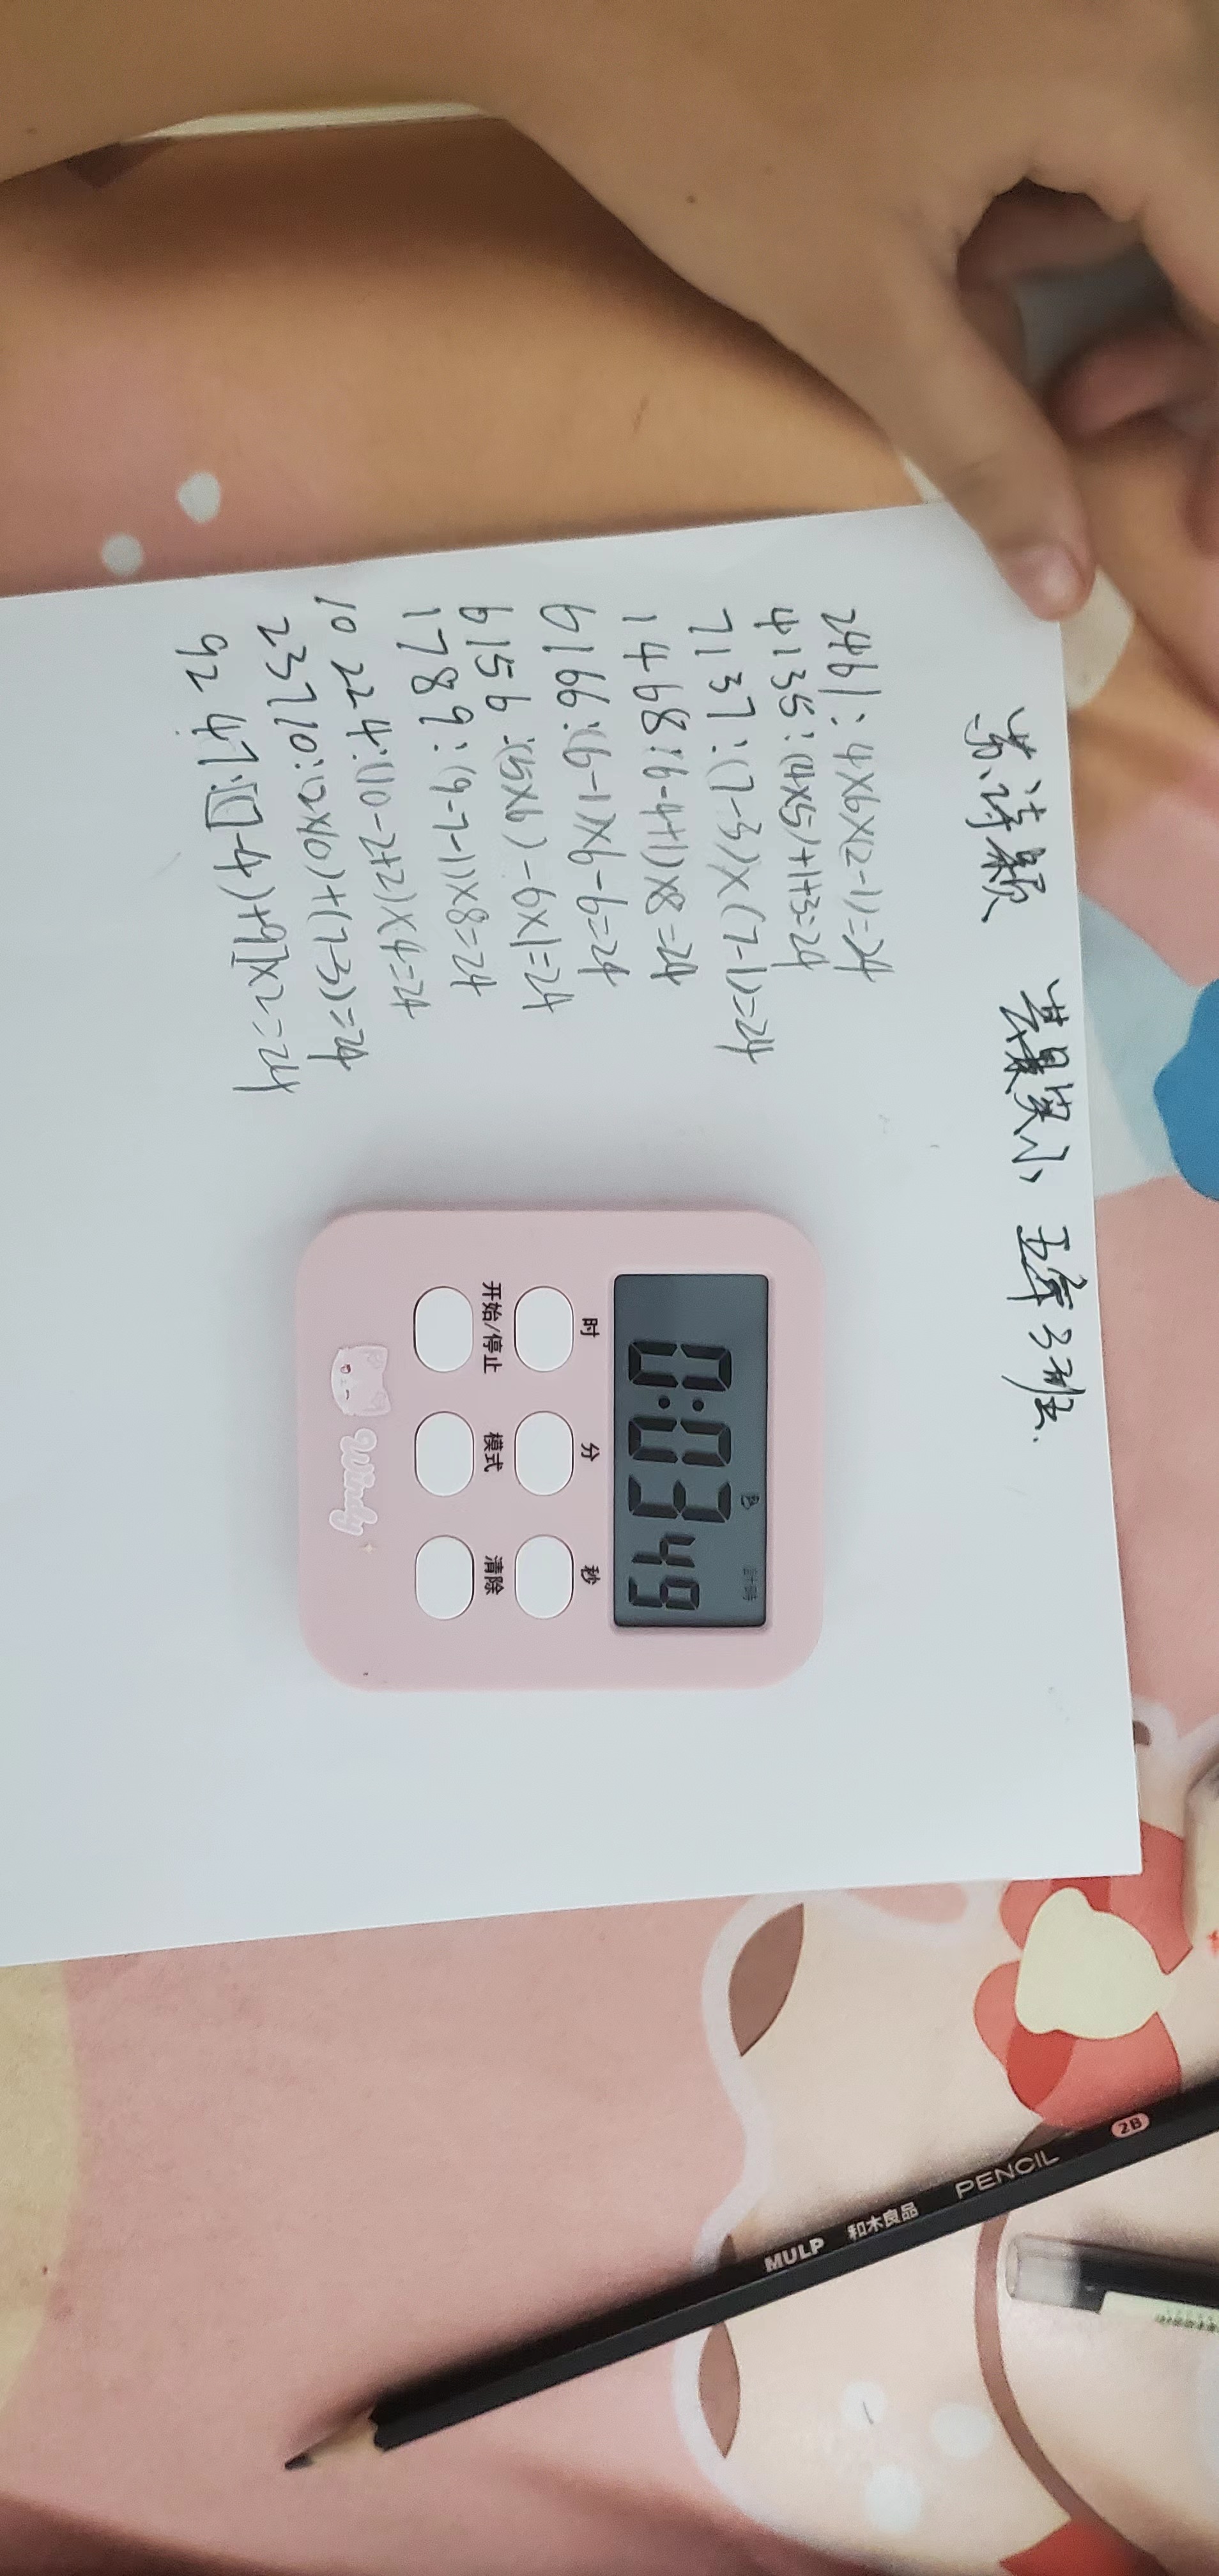 苏诗颖 芸景实小 五年3班
2461：4×6×(2-1)=24
4135：(4×5)+1+3=24
7137：(7-3)×(7-1)=24
1468：(6-4+1)×8=24
6166：(6-1)×6-6=24
6156：(5×6)-6×1=24
1789：(9-7-1)×8=24
10 224：(10-2+2)×4=24
23710：(2×10)+(7-3)=24
9247：[(7-4)+9]×2=24
計時
0:03 49
时 分 秒
开始/停止 模式 清除
Windy
MULP 和木良品 PENCIL 2B